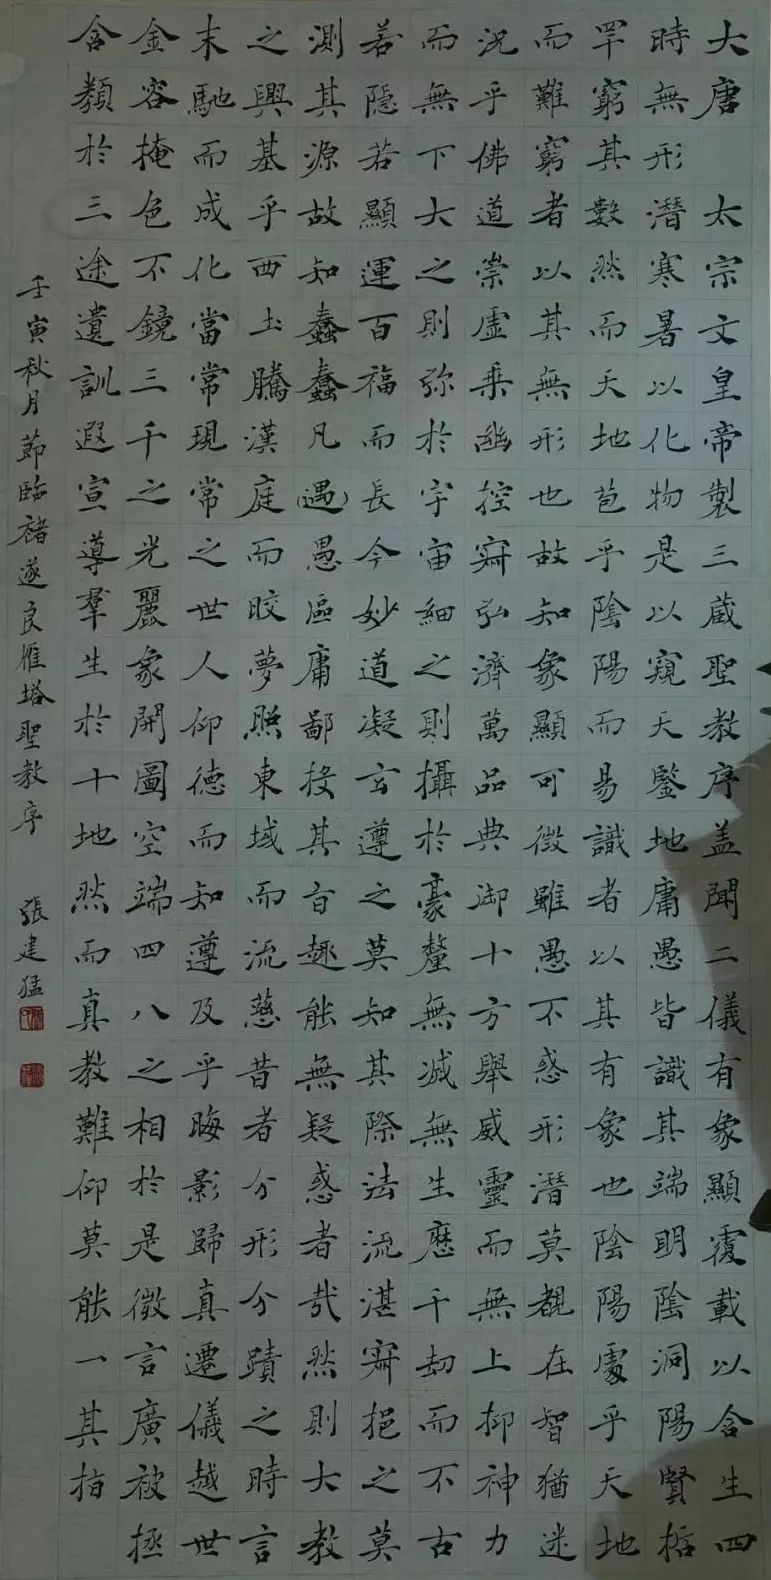 大唐 太宗文皇帝製三蔵聖教序盖聞二儀有象顯覆載以含生四
時無形潛寒暑以化物是以窺天鑒地庸愚皆識其端明陰洞陽賢哲
罕窮其數然而天地苞乎陰陽而易識者以其有象也陰陽處乎天地
而難窮者以其無形也故知象顯可徵雖愚不惑形潛莫覩在智猶迷
況乎佛道崇虛乗幽控寂弘濟萬品典御十方舉威靈而無上抑神力
而無下大之則弥於宇宙細之則攝於豪釐無滅無生歷千劫而不古
若隱若顯運百福而長今妙道凝玄遵之莫知其際法流湛寂挹之莫
測其源故知蠢蠢凡(遇)愚區庸鄙投其旨趣能無疑惑者哉然則大教
之興基乎西土騰漢庭而皎夢照東域而流慈昔者分形分蹟之時言
末馳而成化當常現常之世人仰德而知遵及乎晦影歸真遷儀越世
金容掩色不鏡三千之光麗象開圖空端四八之相於是微言廣被拯
含類於三途遺訓遐宣導羣生於十地然而真教難仰莫能一其指
壬寅秋月節臨褚遂良雁塔聖教序 張建猛